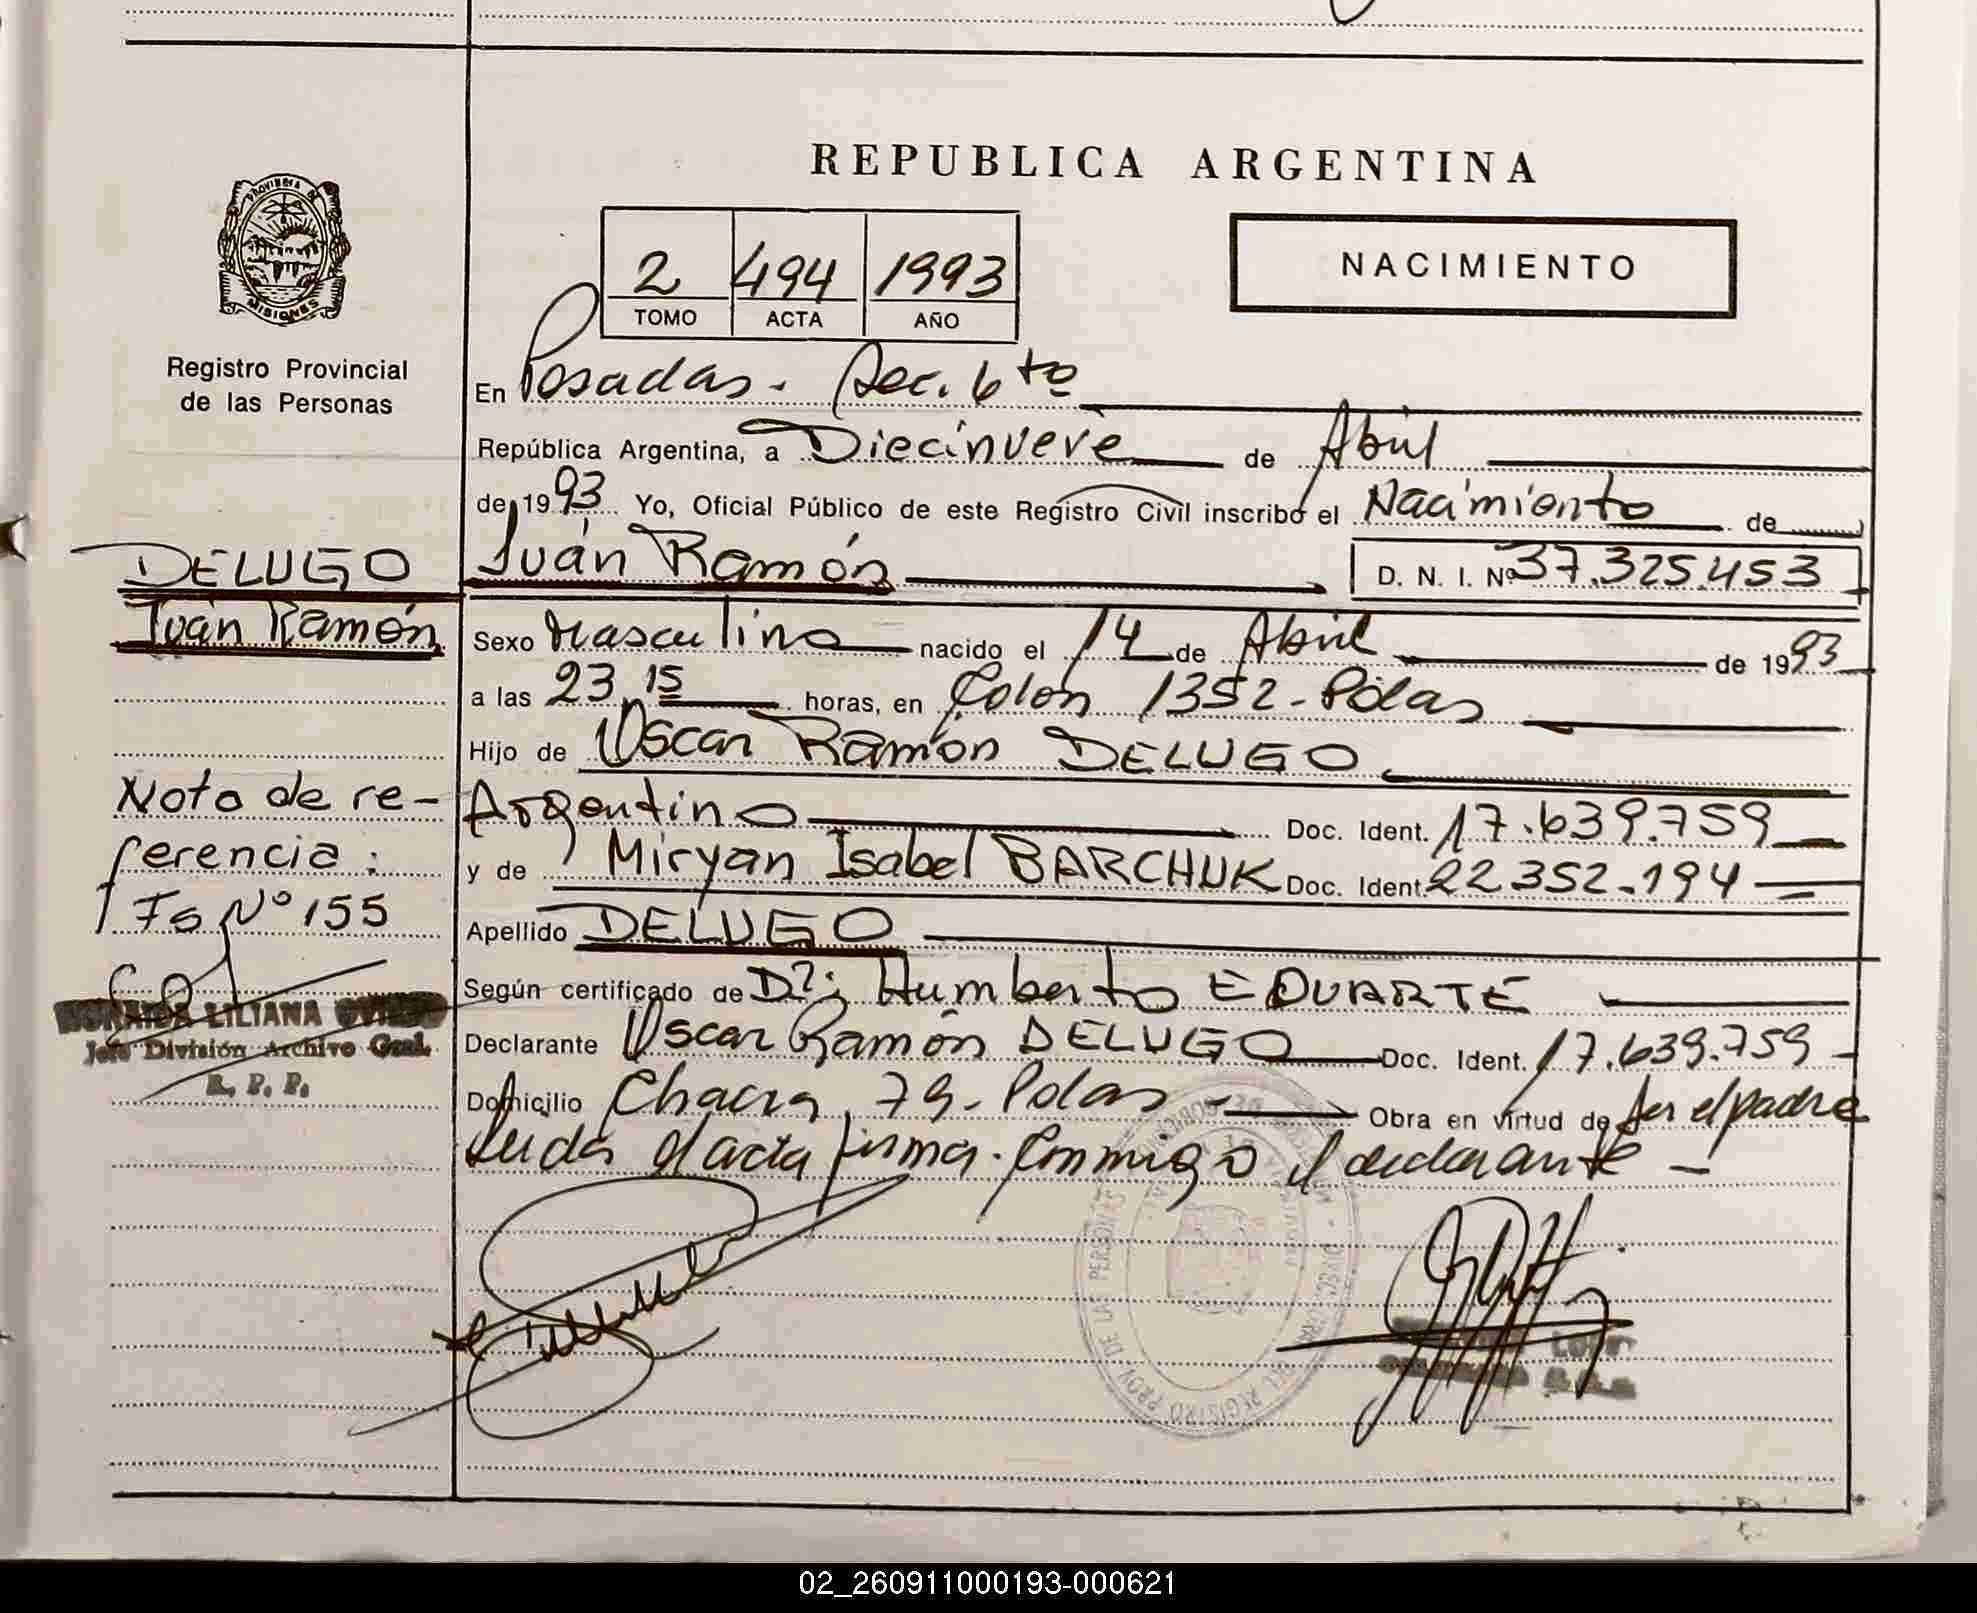 REPUBLICA ARGENTINA
PROVINCIA DE
MISIONES
Registro Provincial
de las Personas
2 494 1993
TOMO ACTA AÑO
NACIMIENTO
En Posadas. Sec. 6ta
República Argentina, a Diecinueve de Abril
de 1993 Yo, Oficial Público de este Registro Civil inscribo el Nacimiento de
DELUGO
Iván Ramón
Iván Ramón D. N. I. Nº 37.325.453
Sexo Masculino nacido el 14 de Abril de 1993
a las 23,15 horas, en Colón 1352 - Pdas
Hijo de Oscar Ramón DELUGO
Argentino Doc. Ident. 17.639.759
y de Miryan Isabel BARCHUK Doc. Ident. 22352.194
Apellido DELUGO
Según certificado de Dr: Humberto EDUARTE
Declarante Oscar Ramón DELUGO Doc. Ident. 17.639.759
Domicilio Chacra 79 - Pdas - Obra en virtud de ser el padre
Leída el acta firma conmigo el declarante
Nota de re-
ferencia:
Fs Nº 155
LILIANA
Jefe División Archivo Gral.
R. P. P.
02_260911000193-000621